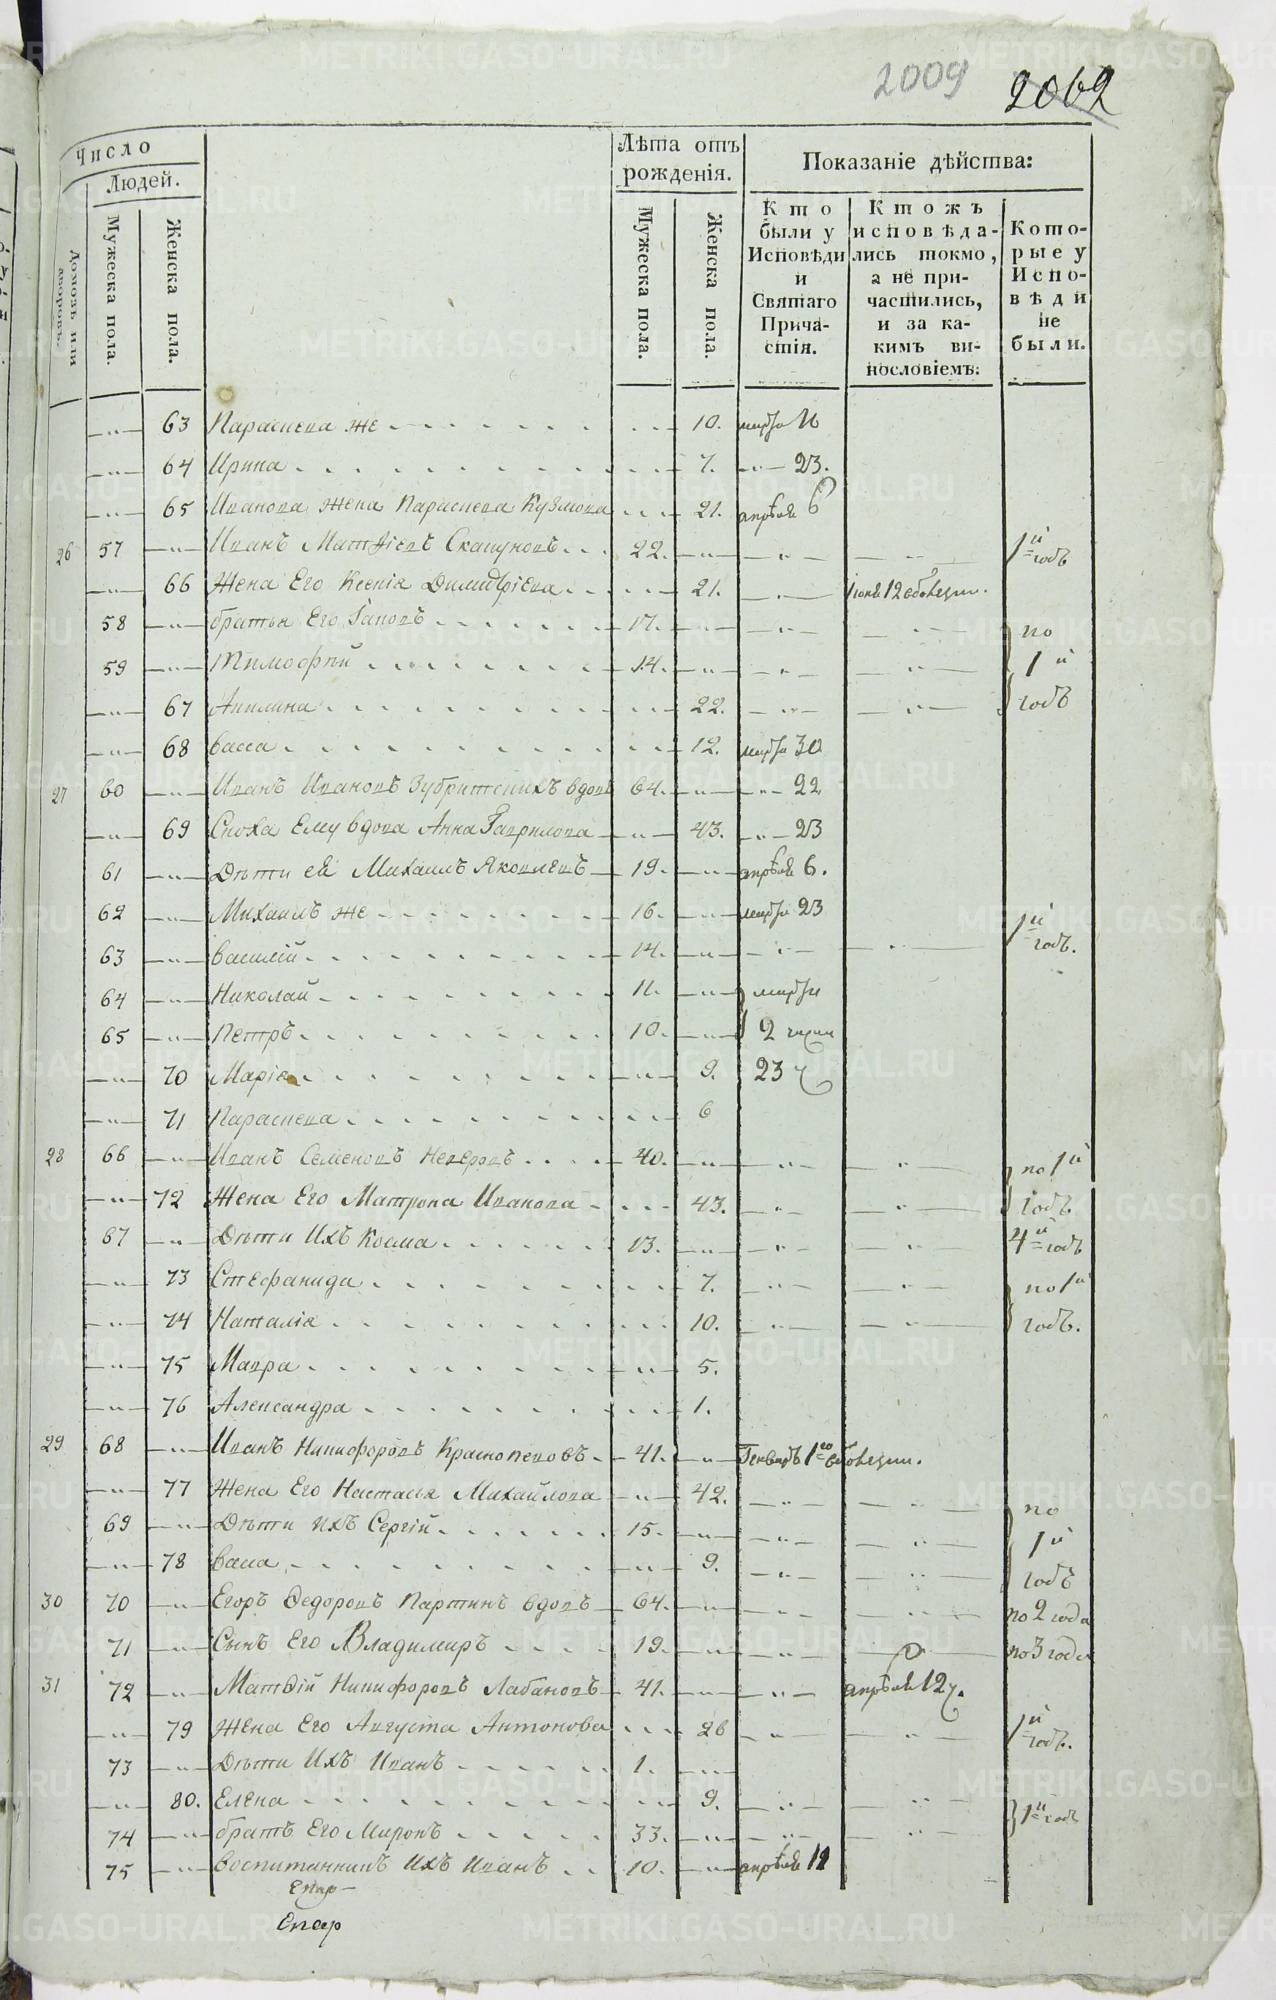 2009 2062
Число
Людей.
Домовъ или дворовъ.
Мужеска пола.
Женска пола.
Лѣта отъ рожденія.
Мужеска пола.
Женска пола.
Показаніе дѣйства:
Кто были у Исповѣди и Святаго Причастія.
Ктожъ исповѣдались токмо, а не причастились, и за какимъ винословіемъ:
Которые у Исповѣди не были.
63 Параскева же 10. марта
64 Ирина 7. 23.
65 Иванова жена Параскева Кузмова 21. апрѣля 6
26 57 Иванъ Матѳіевъ Скапуновъ 22. 1й годъ
66 Жена Его Ксенія Димитріева 21. іюня 12
58 братья Его Іаковъ 17. по
59 Тимофѣй 14. 1й
67 Акилина 22. годъ
68 васса 12. марта 30
27 60 Иванъ Ивановъ Зубритскихъ вдовъ 64. 22
69 Сноха Ему вдова Анна Гаврилова 43. 23
61 Дѣти ей Михаилъ Яковлевъ 19. апрѣля 6.
62 Михаилъ же 16. марта 23
63 василій 14. 1й годъ.
64 Николай 11. марта
65 Петръ 10. 2
70 Марія 9. 23
71 Параскева 6
28 66 Иванъ Семеновъ Неверовъ 40. по 1й
72 Жена Его Матрона Иванова 43. годъ.
67 Дѣти Ихъ Косма 13. 4й годъ
73 Стефанида 7. по 1й
74 Наталія 10. годъ.
75 Мавра 5.
76 Александра 1.
29 68 Иванъ Никифоровъ Краснопевовъ 41. Генваря 1го
77 Жена Его Настасья Михайлова 42. по
69 Дѣти ихъ Сергій 15. 1й
78 васа 9. годъ
30 70 Егоръ Ѳедоровъ Партинъ вдовъ 64. по 2 года
71 Сынъ Его Владимиръ 19. по 3 года
31 72 Матѳій Никифоровъ Лабановъ 41. апрѣля 12
79 Жена Его Августа Антонова 26 1й годъ.
73 Дѣти Ихъ Иванъ 1.
80. Елена 9. 1й годъ
74 братъ Его Миронъ 33.
75 воспитанникъ Ихъ Иванъ 10. апрѣля 12
Егор
Егор